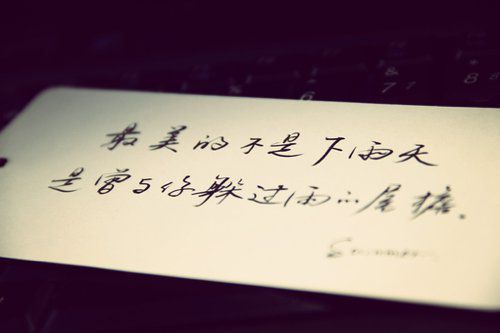 最美的不是下雨天
是曾与你躲过雨的屋檐.